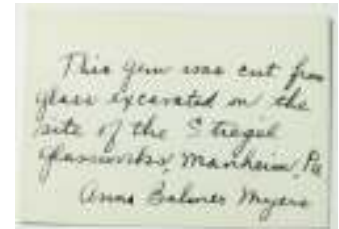 This gem was cut from
glass excavated on the
site of the Stiegel
Glassworks, Manheim, Pa
Anna Balmer Myers